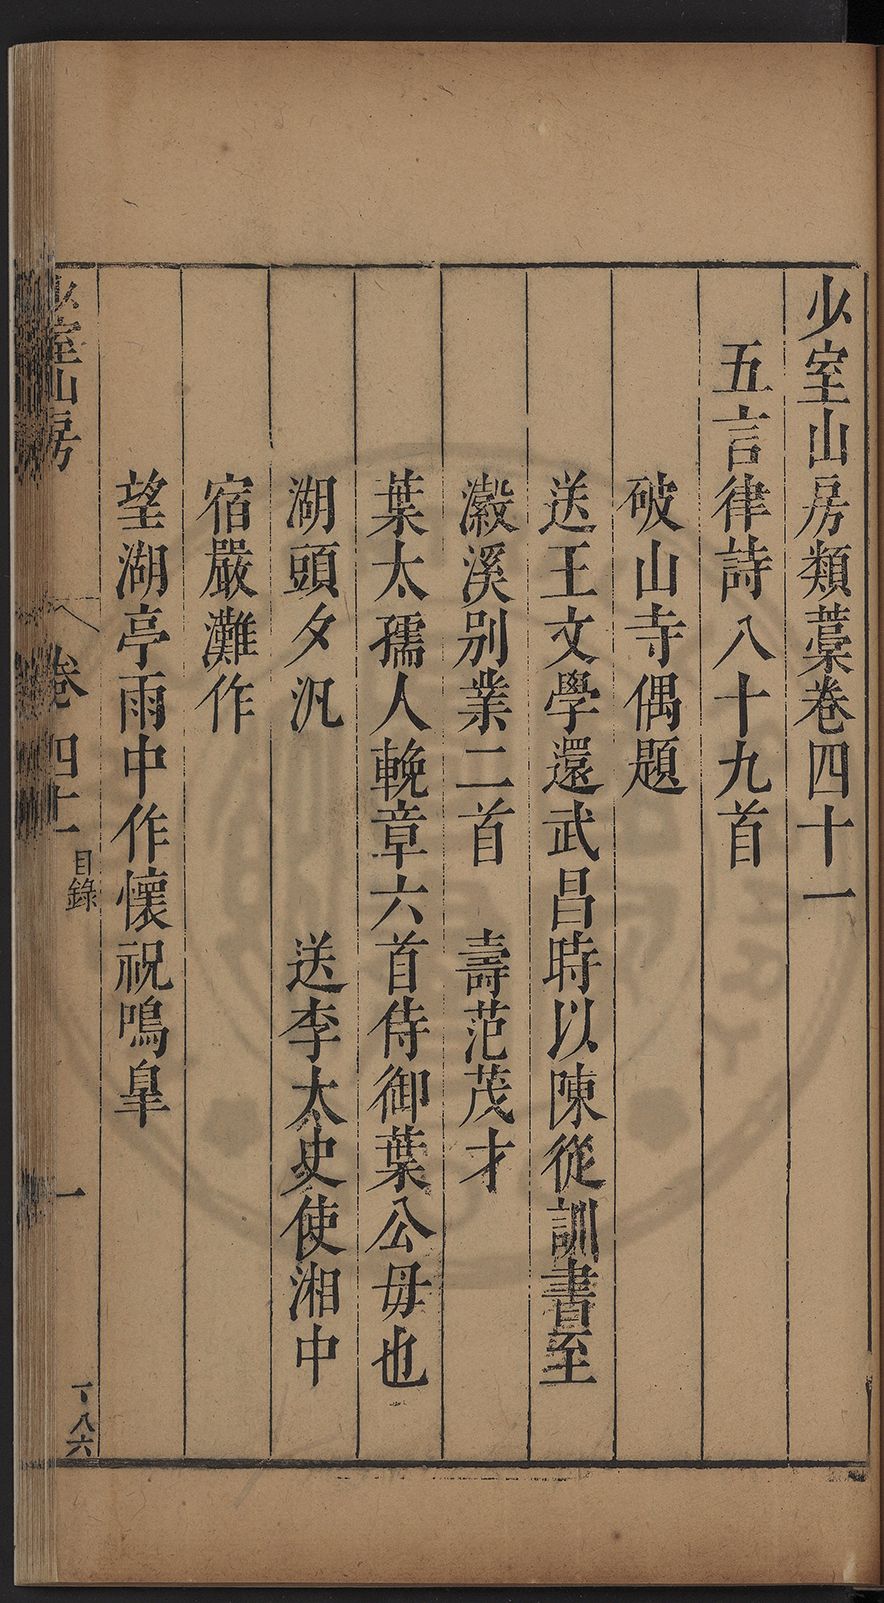 少室山房類藁卷四十一
五言律詩八十九首
破山寺偶題
送王文學還武昌時以陳從訓書至
瀫溪别業二首　壽范茂才
葉太孺人輓章六首侍御葉公毋也
湖頭夕汎　送李太史使湘中
宿嚴灘作
望湖亭雨中作懷祝鳴臯
少室山房
卷四十一
目錄
一
八六